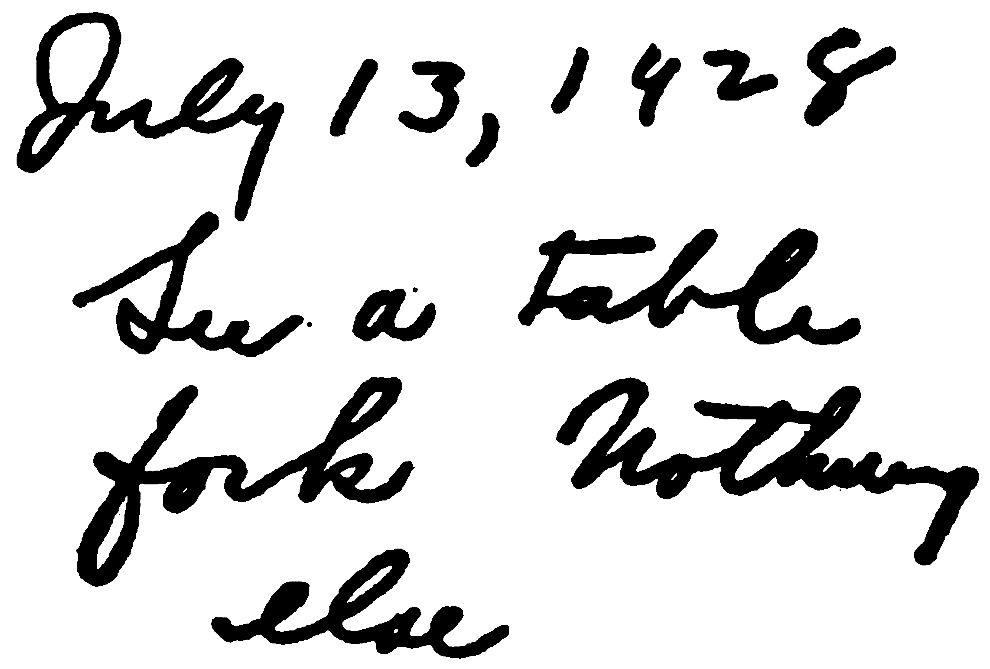 July 13, 1928
See a table
fork Nothing
else